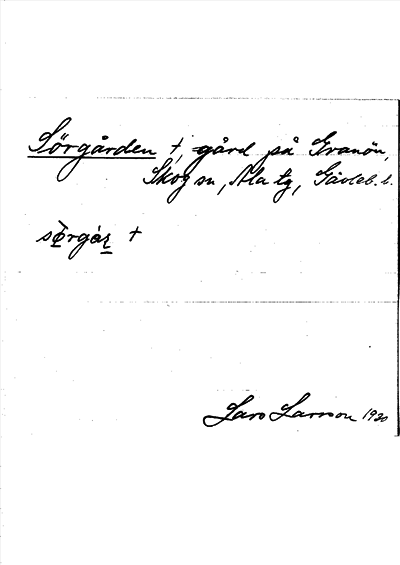 Sörgården †, gård på Granön,
Skog sn, Ala tg, Gävleb. l.
sørgáꞃ †
Lars Larsson 1930